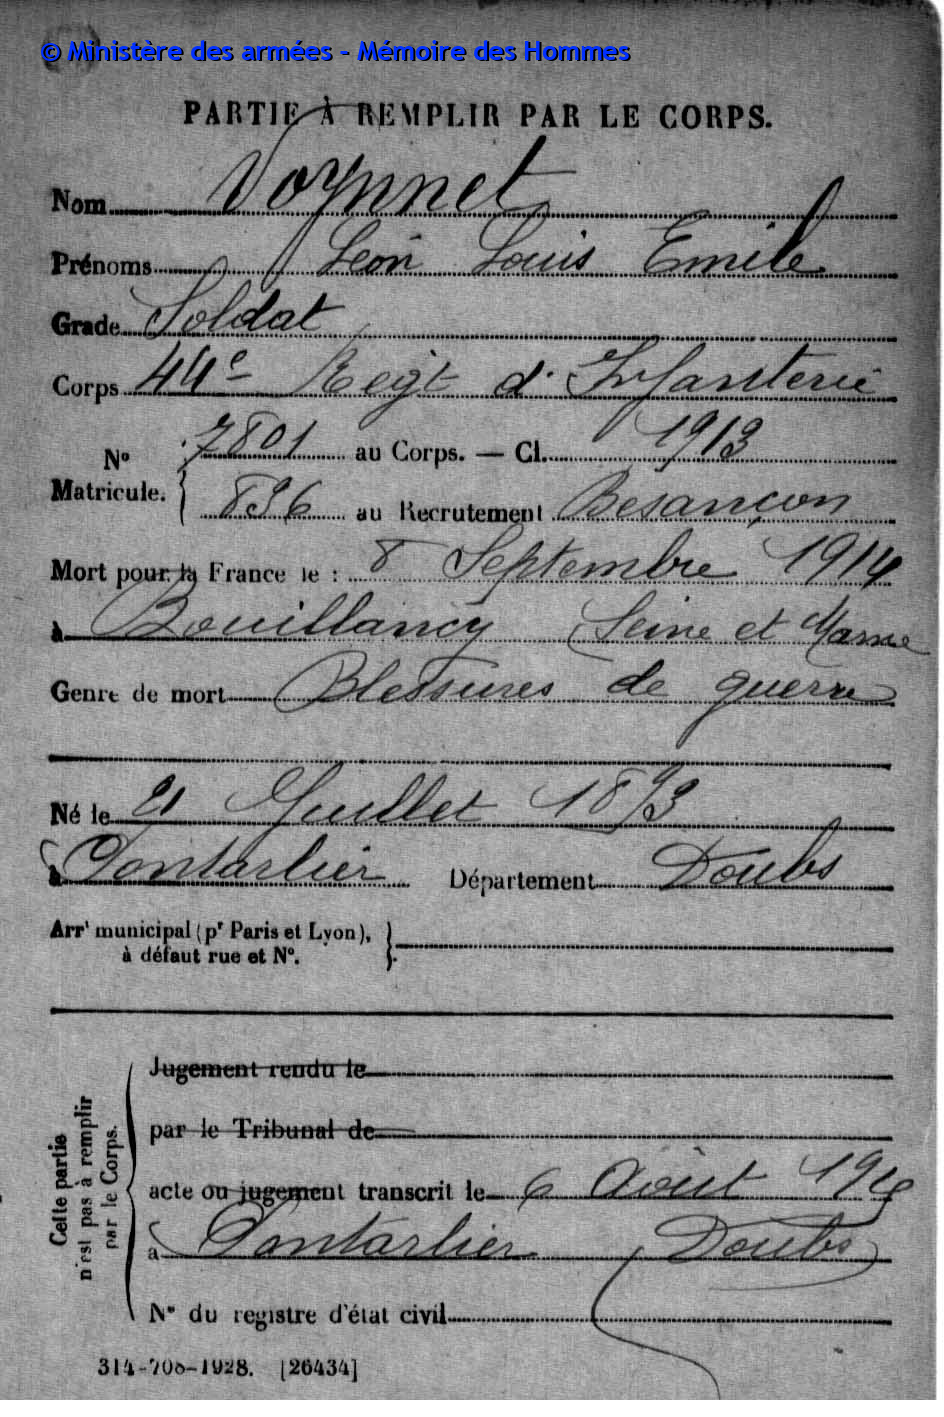 © Ministère des armées - Mémoire des Hommes
PARTIE À REMPLIR PAR LE CORPS.
Nom Voynnet
Prénoms Léon Louis Emile
Grade Soldat
Corps 44e Régt d'Infanterie
N° 7801 au Corps. — Cl. 1913
Matricule. 896 au Recrutement Besançon
Mort pour la France le : 8 Septembre 1914
à Bouillancy (Seine et Marne
Genre de mort Blessures de guerre
Né le 21 Juillet 1893
à Pontarlier Département Doubs
Arrt municipal (pr Paris et Lyon),
à défaut rue et N°.
Cette partie
n'est pas à remplir
par le Corps.
Jugement rendu le
par le Tribunal de
acte ou jugement transcrit le 6 Août 1915
à Pontarlier (Doubs)
N° du registre d'état civil
314-708-1928. [26434]